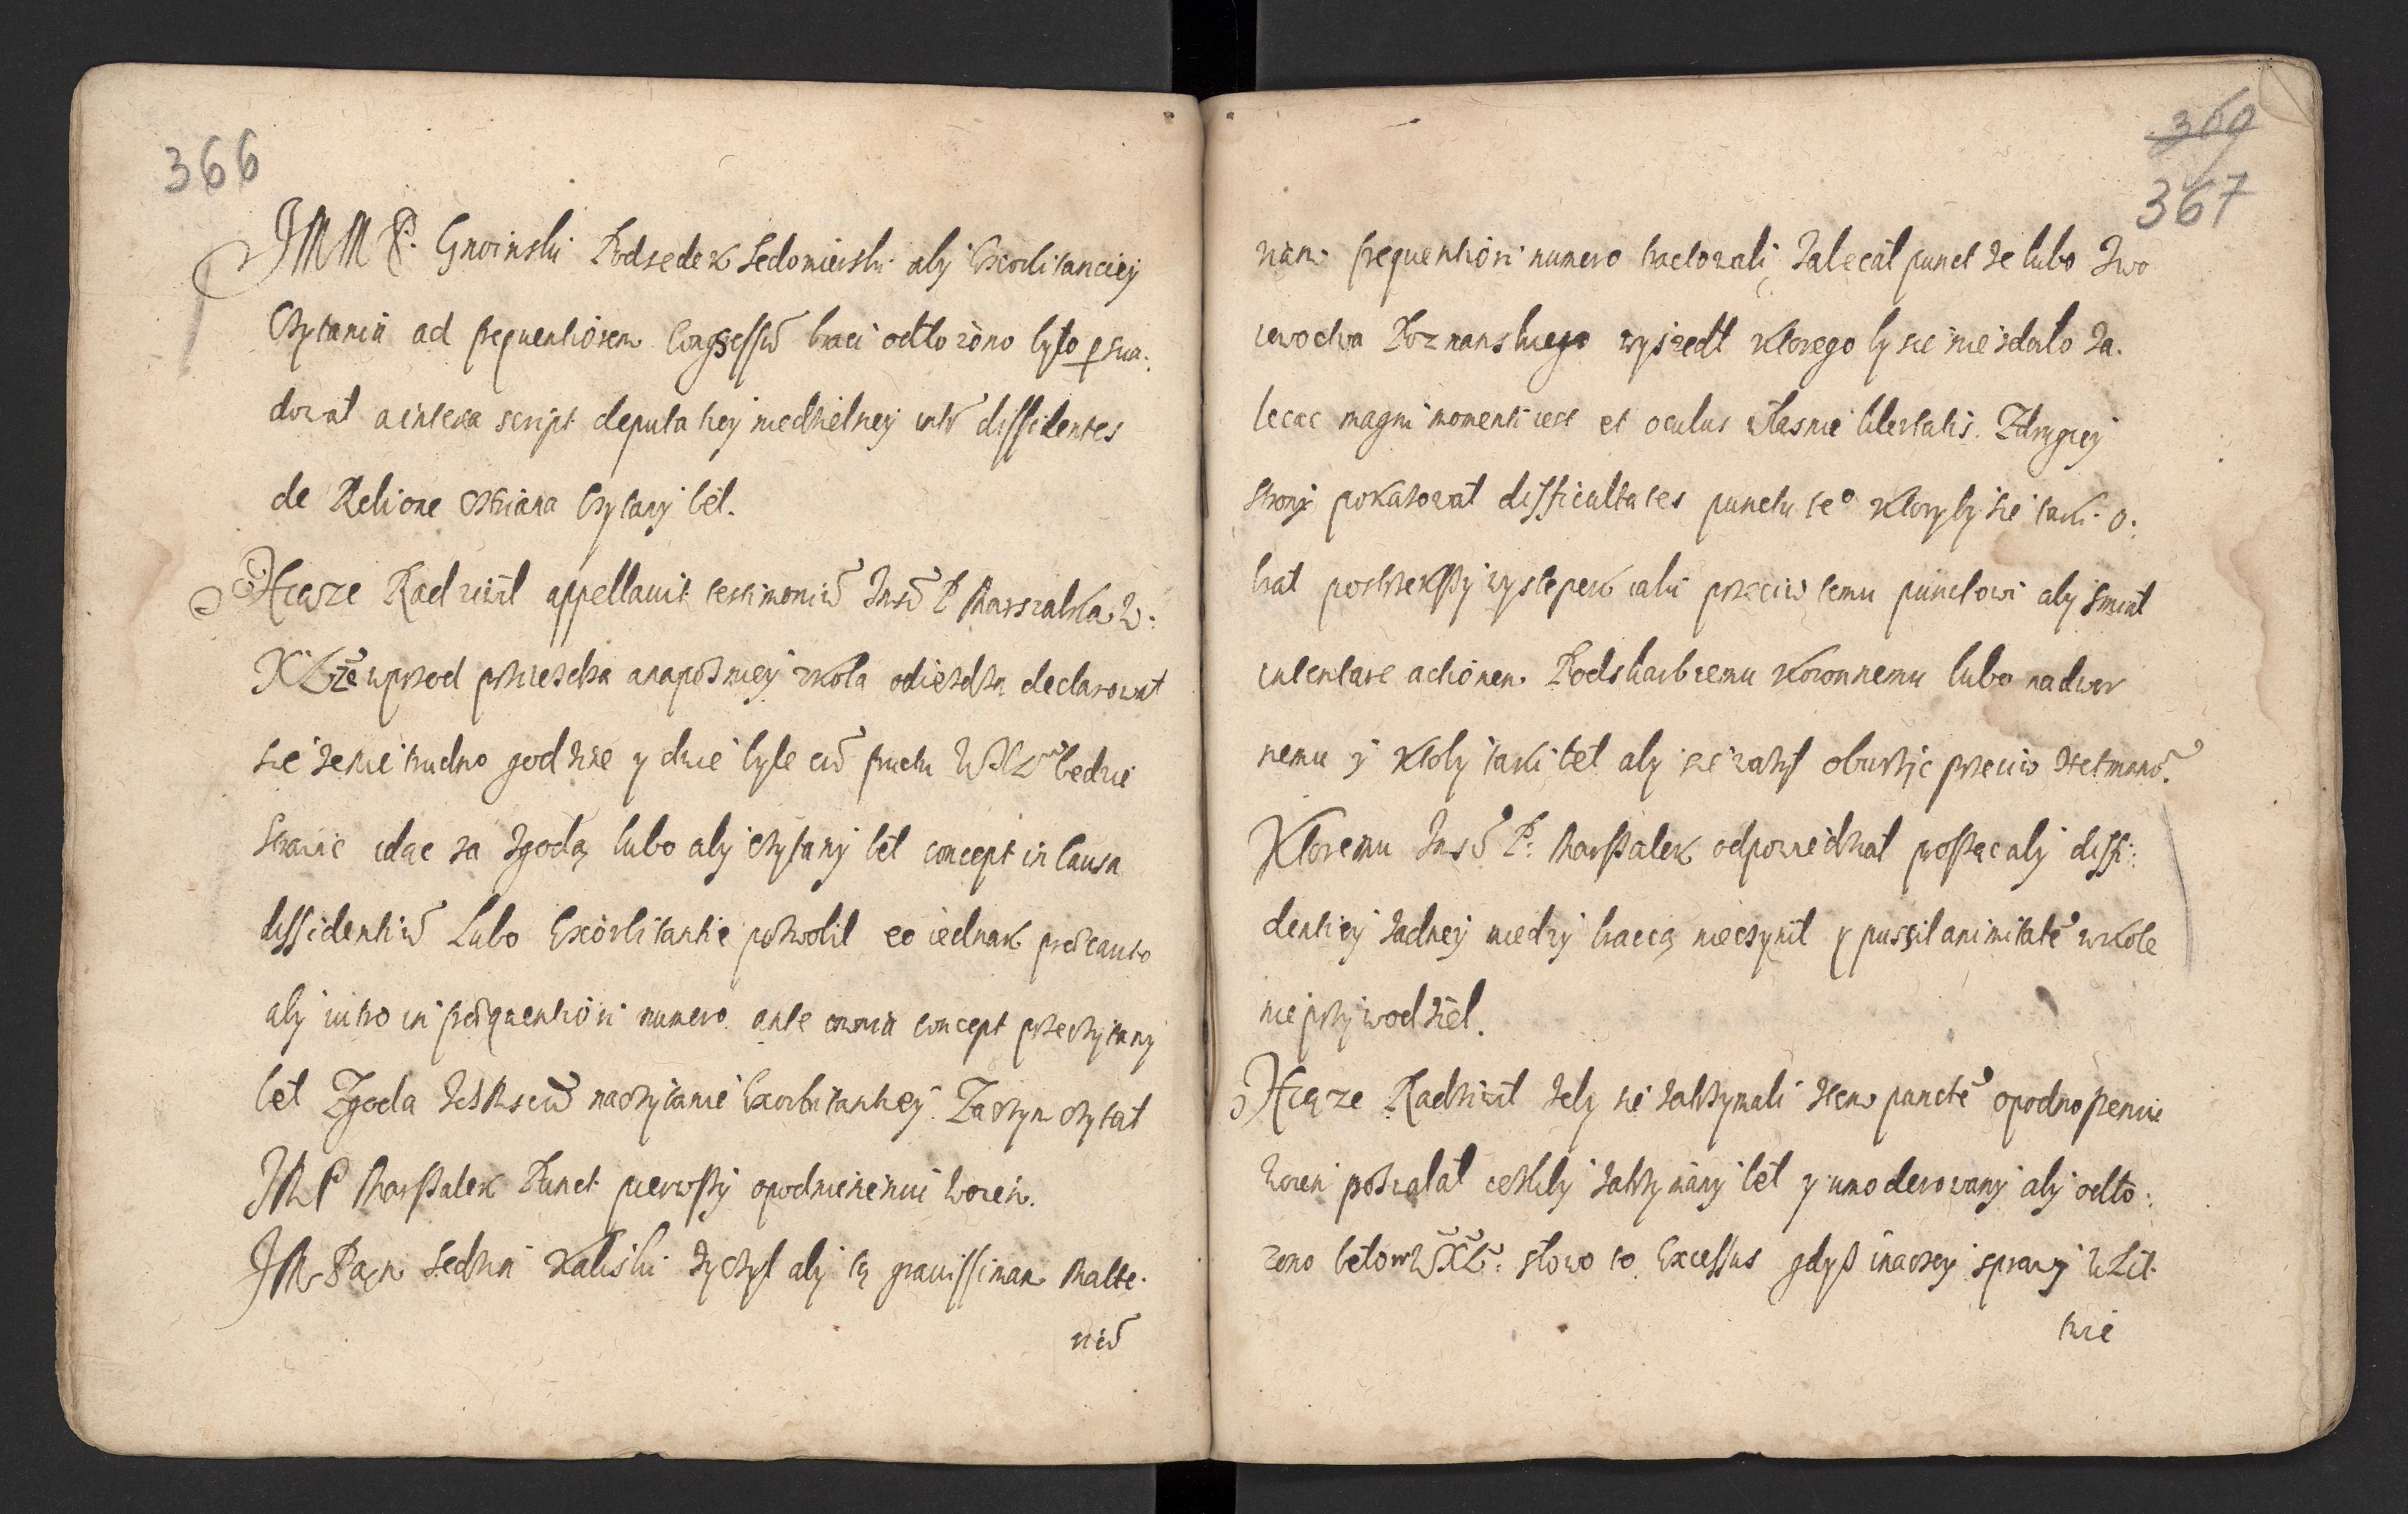 366
JMM P. Gnoinski Podsedek Sedomierski aby Exorbitanciey
Czytania ad frequentiorem Congressũ braci odłożono było ꝑsua:
dował a intera script deputatiey niedzielney intr dissidentes
de Relione Chtiana Czytany bel.
Xiąze Radziwił appellavit testimoniũ Jmsũ P Marszalka W.
X L ze wprzod przieżdza anapozniey zkoła odieżdza declarował
sie że nie trudno godzine y dwie byle cũ fructu WXL bedzie
strawic idąc za zgodą lubo aby czytany bel concept in causa
dissidentiũ Lubo Exorbitantie pozwolił eo iednak precauto
aby iutro in frequentiori numero ante omnia concept przeczytany
bel Zgoda na czytanie Exorbitantiey. Zaczym czytał
JM P Marszałek Punct pierwszy o podniesieniu
JM Pan Sedzia Kaliski życzył aby tą gravissimam Matte:
riã
369
367
riam frequentiori numero tractowali, Zalecał punct że lubo Zwo
iewodtwa Poznanskiego wyszedł ktorego by sie nie zdało za:
lecac magni momenti iest et oculus własnie libertatis. Zdrugiey
strony pokazował difficultates punctu te⁰ ktoryby sie taki o:
brał postrzekszy wystepek iaki przeciw temu punctowi aby smiał
intentare actionem Podskarbiemu Koronnemu lubo nadwor
nemu y ktoby taki bel aby sie ważył oburzyc przeciw Hetmanõ.
Ktoremu Jmsũ P. Marszałek odpowiedział prosząc aby diffi:
dentiey żadney miedzy bracią nieczynił y pussilanimitatẽ wkole
nieprzywodził.
Xiąze Radziwił żeby sie zatrzymali ztem punctẽ opodnoszeniu
pozwalał iezliby zatrzymány bel y umoderowany aby odło:
zono beło w W X L: słowo to Excessus gdysz inaczey sprawy w Lit
wie